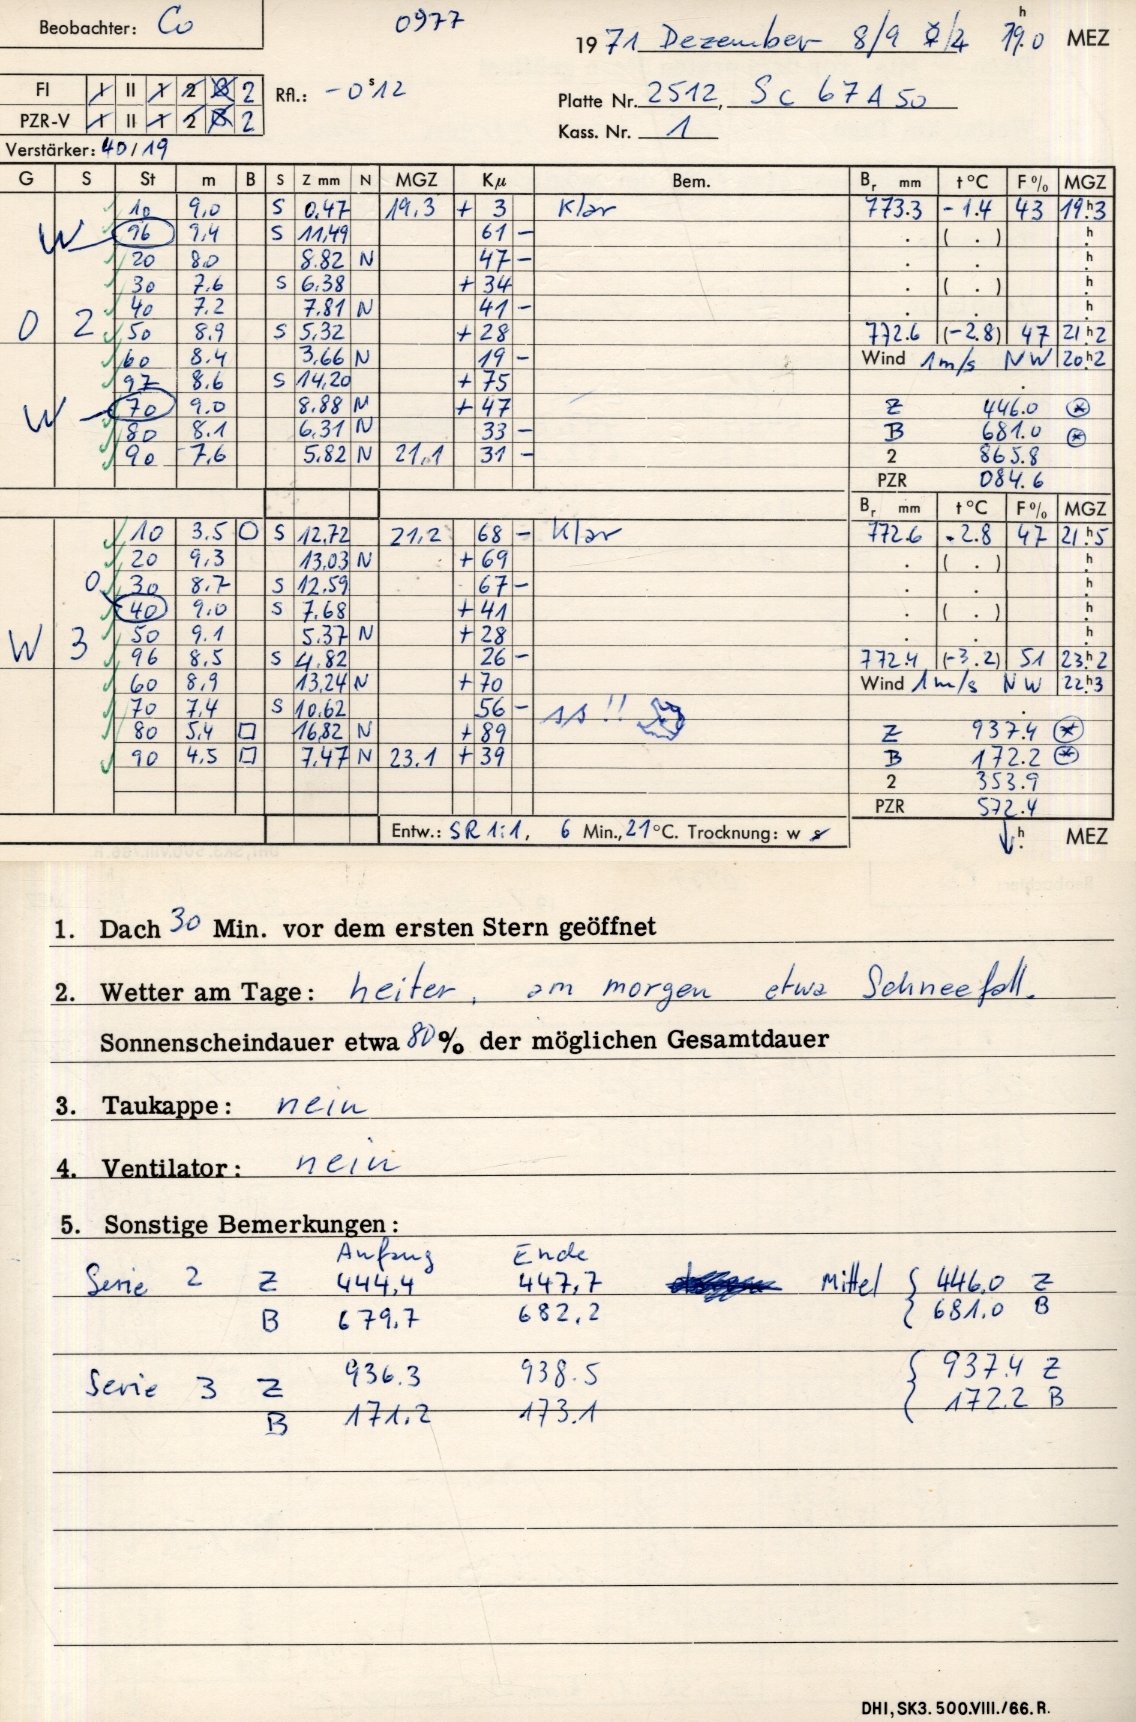 Beobachter: Co 0977 1971 Dezember 8/9 ☿/♃ 19.0 h MEZ
FI I II 1 2 3 2 Rfl.: -0 s 12 Platte Nr. 2512, Sc 67 A 50
PZR-V I II 1 2 3 2 Kass. Nr. 1
Verstärker: 40/19
G S St m B S Z mm N MGZ Kμ Bem. Br mm t °C F % MGZ
10 9,0 S 0,47 19,3 + 3 Klar 773.3 -1.4 43 19 h 3
W 96 9,4 S 11,49 61 - . ( . ) h
20 8.0 8.82 N 47 - . . h
30 7.6 S 6.38 + 34 . ( . ) h
40 7.2 7.81 N 41 - . . h
0 2 50 8.9 S 5,32 + 28 772.6 (-2.8) 47 21 h 2
60 8.4 3,66 N 19 - Wind 1 m/s NW 20 h 2
97 8.6 S 14,20 + 75
W 70 9.0 8.88 N + 47 Z 446.0 *
80 8.1 6,31 N 33 - B 681.0 *
90 7,6 5.82 N 21,1 31 - 2 865.8
PZR 084.6
Br mm t °C F % MGZ
10 3.5 O S 12,72 21,2 68 - Klar 772.6 -2.8 47 21 h 5
20 9,3 13,03 N + 69 . ( . ) h
0 30 8.7 S 12.59 67 - . . h
40 9,0 S 7.68 + 41 . ( . ) h
50 9.1 5.37 N + 28 . . h
W 3 96 8,5 S 4,82 26 - 772.4 (-3.2) 51 23 h 2
60 8,9 13,24 N + 70 Wind 1 m/s NW 22 h 3
70 7,4 S 10,62 56 - ss !!
80 5.4 □ 16,82 N + 89 Z 937.4 *
90 4,5 □ 7,47 N 23.1 + 39 B 172.2 *
2 353.9
PZR 572.4
Entw.: SR 1:1, 6 Min., 21 °C. Trocknung: w s ↓ h MEZ
1. Dach 30 Min. vor dem ersten Stern geöffnet
2. Wetter am Tage: heiter, am morgen etwa Schneefall.
Sonnenscheindauer etwa 80 % der möglichen Gesamtdauer
3. Taukappe: nein
4. Ventilator: nein
5. Sonstige Bemerkungen:
Anfang Ende
Serie 2 Z 444,4 447,7 Mittel { 446.0 Z
B 679,7 682,2 681.0 B
Serie 3 Z 936.3 938.5 { 937.4 Z
B 171.2 173.1 172.2 B
DHI, SK3. 500.VIII./66. R.